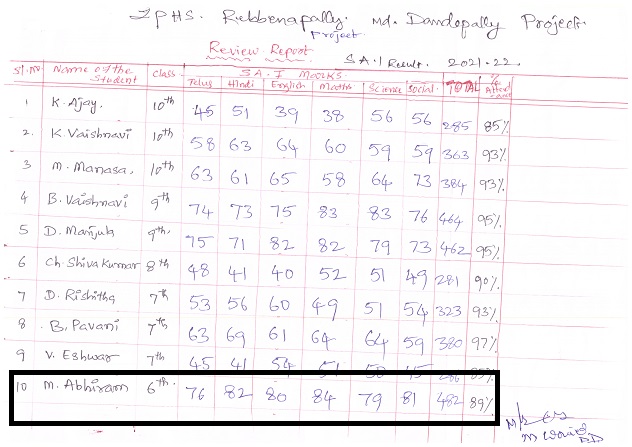 ZPHS. Rebbenapally. Md. Dandepally Project.
Project
Review Report
S.A.I Result. 2021-22.
Sl.No Name of the Student Class S.A.I Marks. TOTAL % Attendance
Telug Hindi English Maths Science Social
1 K. Ajay. 10th 45 51 39 38 56 56 285 85%
2. K. Vaishnavi 10th 58 63 64 60 59 59 363 93%
3 M. Manasa. 10th 63 61 65 58 64 73 384 93%
4 B. Vaishnavi 9th 74 73 75 83 83 76 464 95%
5 D. Manjula 9th. 75 71 82 82 79 73 462 95%
6 Ch. Shiva Kumar 8th 48 41 40 52 51 49 281 90%
7 D. Rishitha 7th 53 56 60 49 51 54 323 93%
8 B. Pavani 7th 63 69 61 64 64 59 380 97%
9 V. Eshwar 7th 45 41 54
10 M. Abhiram 6th. 76 82 80 84 79 81 482 89%